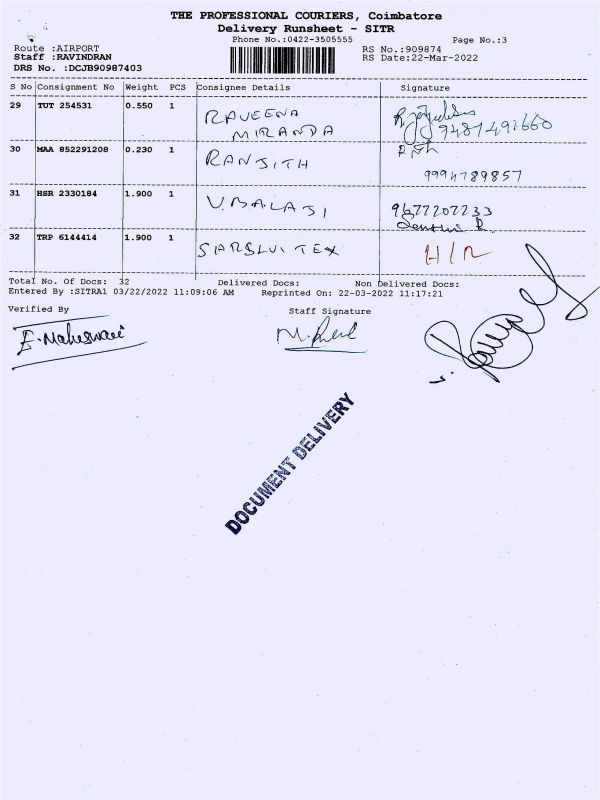 THE PROFESSIONAL COURIERS, Coimbatore
Delivery Runsheet - SITR
Phone No.:0422-3505555
Page No.:3
Route :AIRPORT
RS No.:909874
Staff :RAVINDRAN
RS Date:22-Mar-2022
DRS No. :DCJB90987403
S No Consignment No Weight PCS Consignee Details Signature
29 TUT 254531 0.550 1 RAVEENA
MIRANDA
30 MAA 852291208 0.230 1 RANJITH
9994789857
31 HSR 2330184 1.900 1 V.BALAJI 9677207233
32 TRP 6144414 1.900 1
Total No. Of Docs: 32 Delivered Docs: Non Delivered Docs:
Entered By :SITRA1 03/22/2022 11:09:06 AM Reprinted On: 22-03-2022 11:17:21
Verified By Staff Signature
E.Maheswari
DOCUMENT DELIVERY